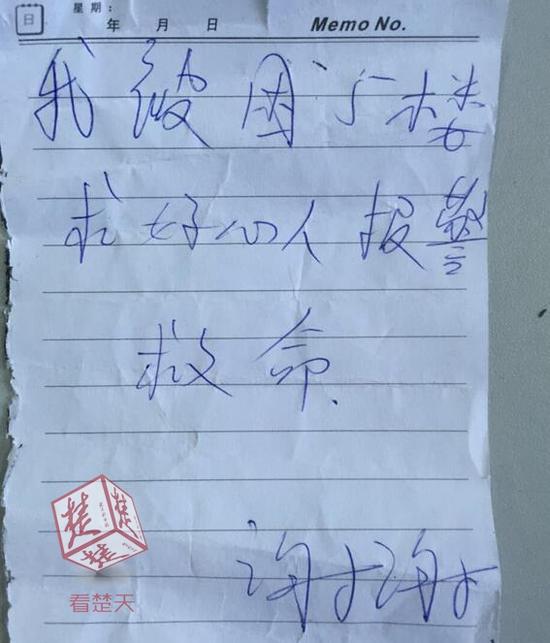 日
星期:
年 月 日 Memo No.
我被困5楼
求好心人报警
救命.
谢谢
楚
看楚天